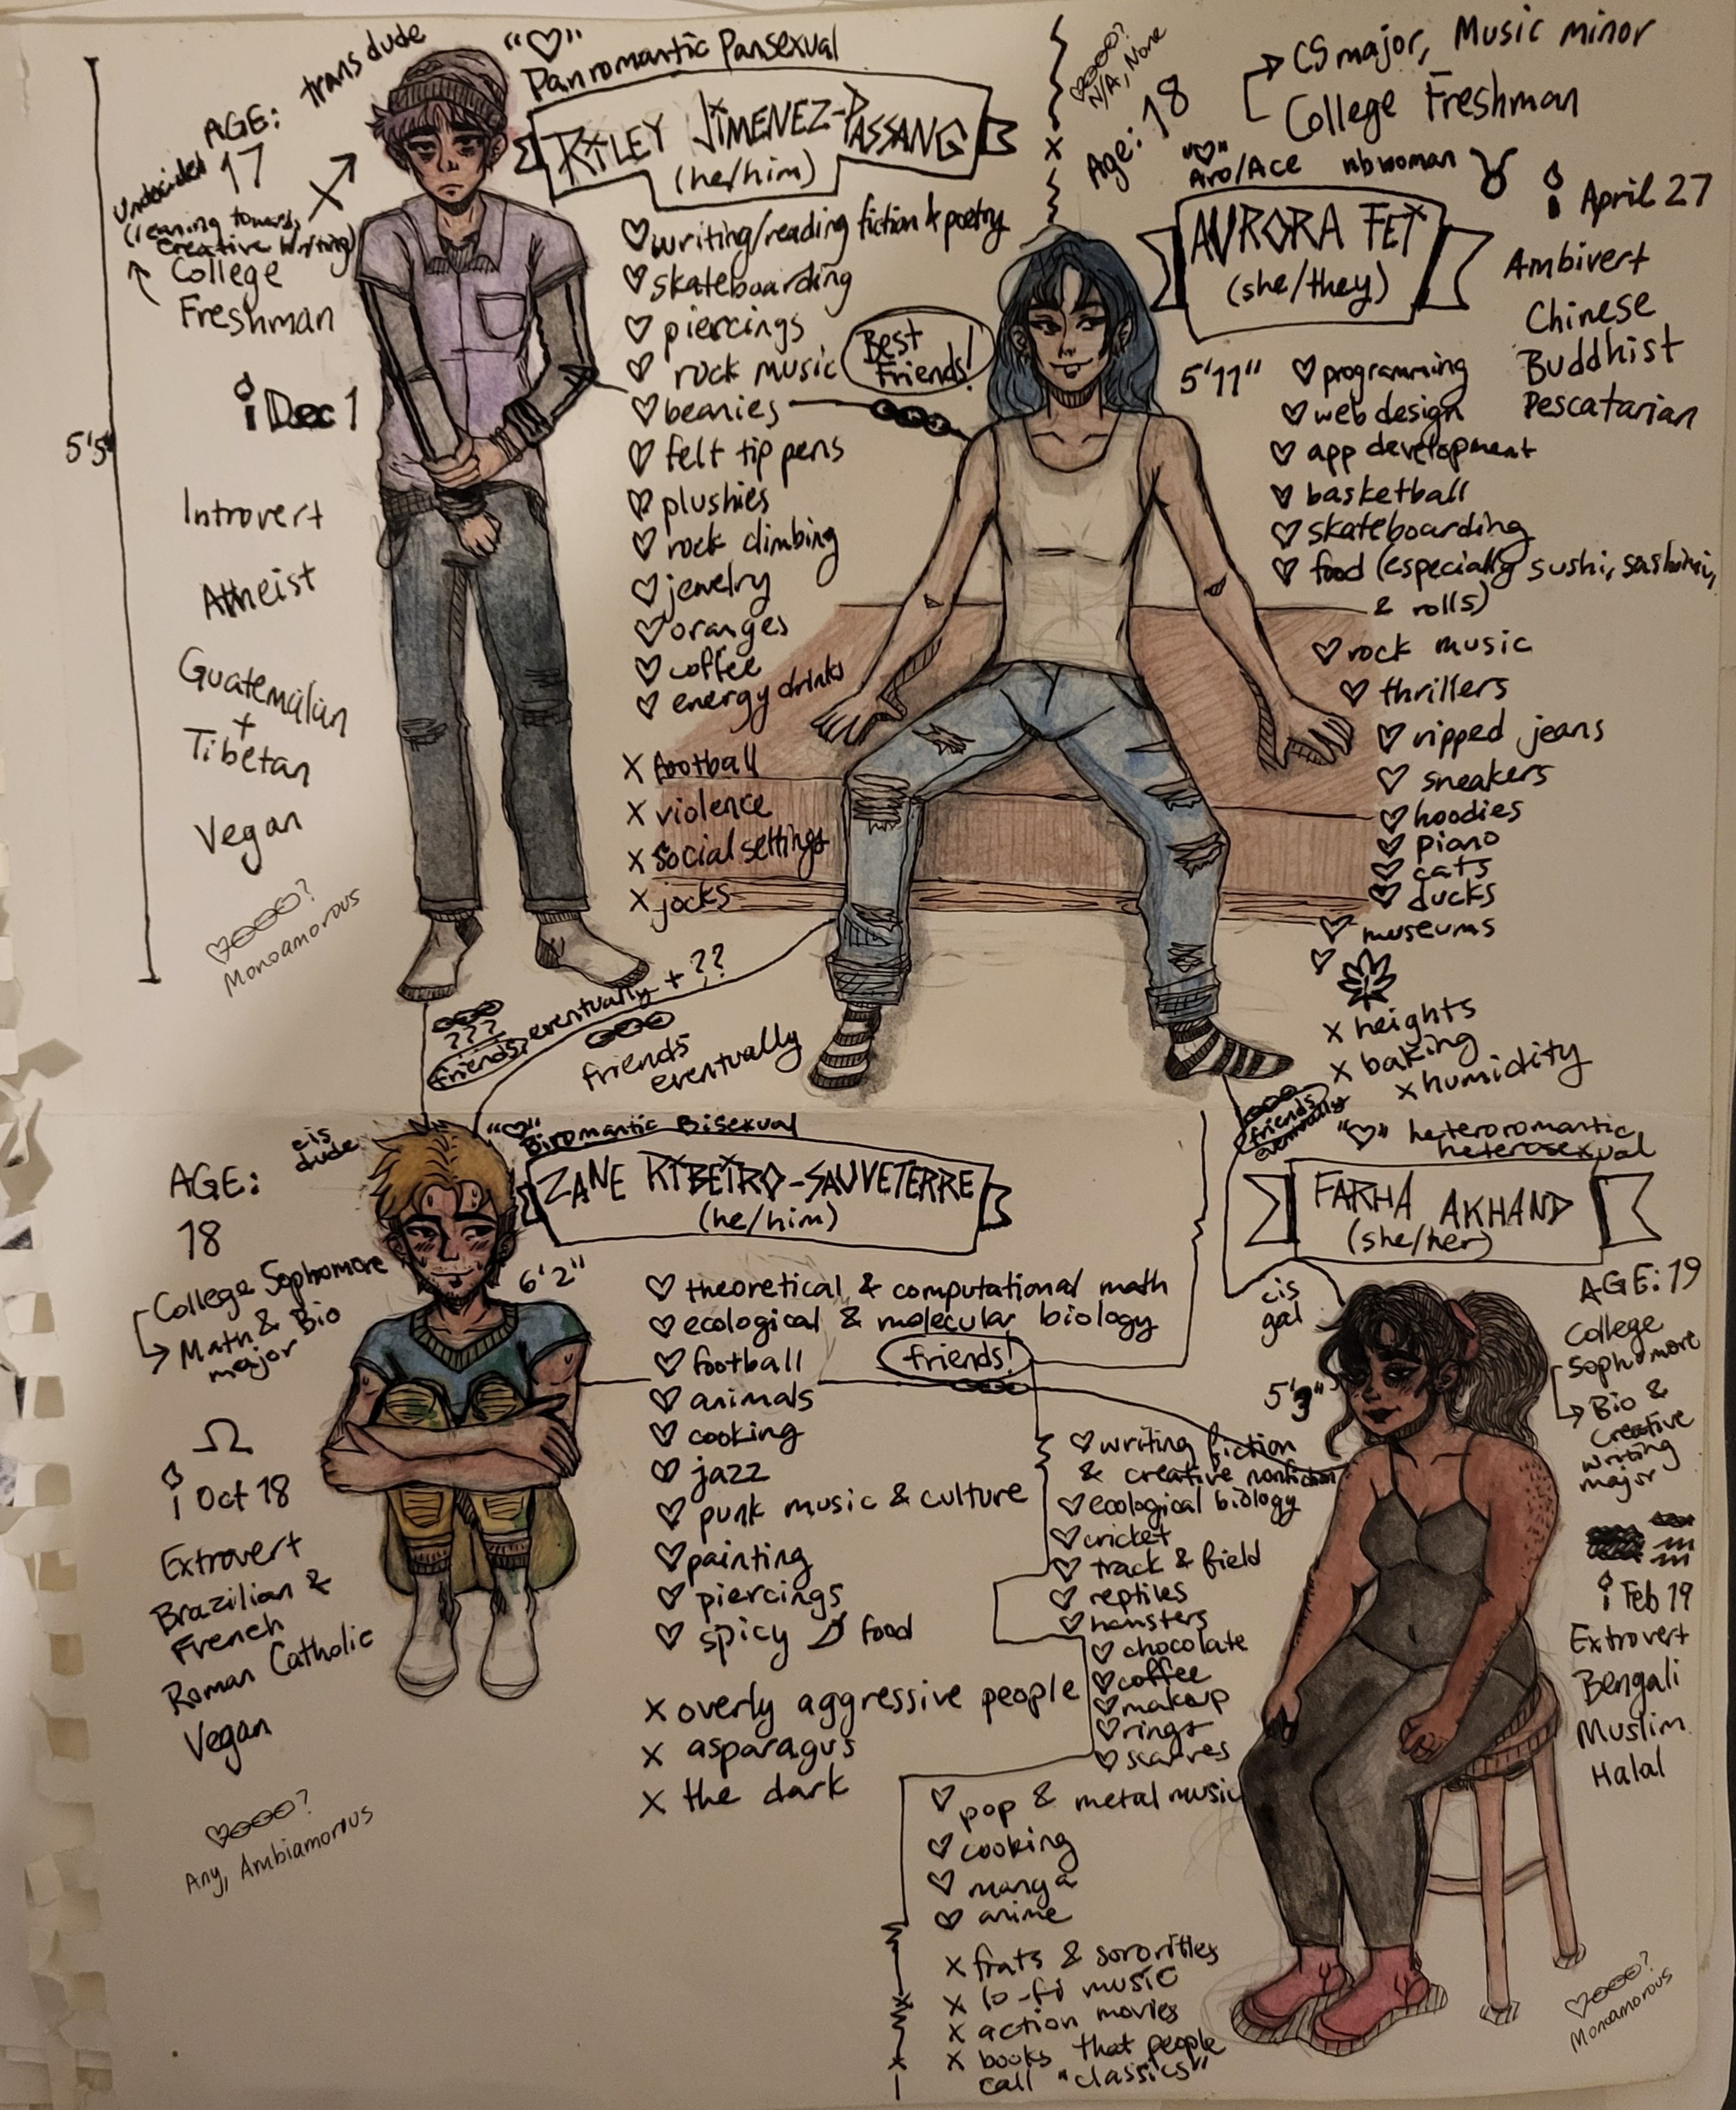 trans dude
AGE:
17
undecided
(leaning towards
creative writing)
College
Freshman
5'5"
Dec 1
Introvert
Atheist
Guatemalan
+
Tibetan
Vegan
?
Monoamorous
"♡"
Panromantic Pansexual
RILEY JIMENEZ-PASSANG
(he/him)
♡ writing/reading fiction & poetry
♡ skateboarding
♡ piercings
♡ rock music
♡ beanies
♡ felt tip pens
♡ plushies
♡ rock climbing
♡ jewelry
♡ oranges
♡ coffee
♡ energy drinks
X football
X violence
X social settings
X jocks
Best
Friends!
?
N/A, None
Age: 18
CS major, Music minor
College Freshman
"♡"
Aro/Ace nb woman ♉
April 27
AURORA FEI
(she/they)
Ambivert
Chinese
Buddhist
Pescatarian
5'11"
♡ programming
♡ web design
♡ app development
♡ basketball
♡ skateboarding
♡ food (especially sushi, sashimi,
& rolls)
♡ rock music
♡ thrillers
♡ ripped jeans
♡ sneakers
♡ hoodies
♡ piano
♡ cats
♡ ducks
♡ museums
♡
X heights
X baking
X humidity
???
friends, eventually + ??
friends
eventually
friends
eventually
cis
dude
AGE:
18
College Sophomore
Math & Bio
major
♎
Oct 18
Extrovert
Brazilian &
French
Roman Catholic
Vegan
?
Any, Ambiamorous
"♡"
Biromantic Bisexual
ZANE RIBEIRO-SAUVETERRE
(he/him)
6'2"
♡ theoretical & computational math
♡ ecological & molecular biology
♡ football
♡ animals
♡ cooking
♡ jazz
♡ punk music & culture
♡ painting
♡ piercings
♡ spicy food
X overly aggressive people
X asparagus
X the dark
friends!
"♡" heteroromantic
heterosexual
FARHA AKHAND
(she/her)
cis
gal
5'3"
AGE: 19
College
Sophomore
Bio &
Creative
writing
major
♒
Feb 19
Extrovert
Bengali
Muslim
Halal
?
Monoamorous
♡ writing fiction
& creative nonfiction
♡ ecological biology
♡ cricket
♡ track & field
♡ reptiles
♡ hamsters
♡ chocolate
♡ coffee
♡ makeup
♡ rings
♡ scarves
♡ pop & metal music
♡ cooking
♡ manga
♡ anime
X frats & sororities
X lo-fi music
X action movies
X books that people
call "classics"